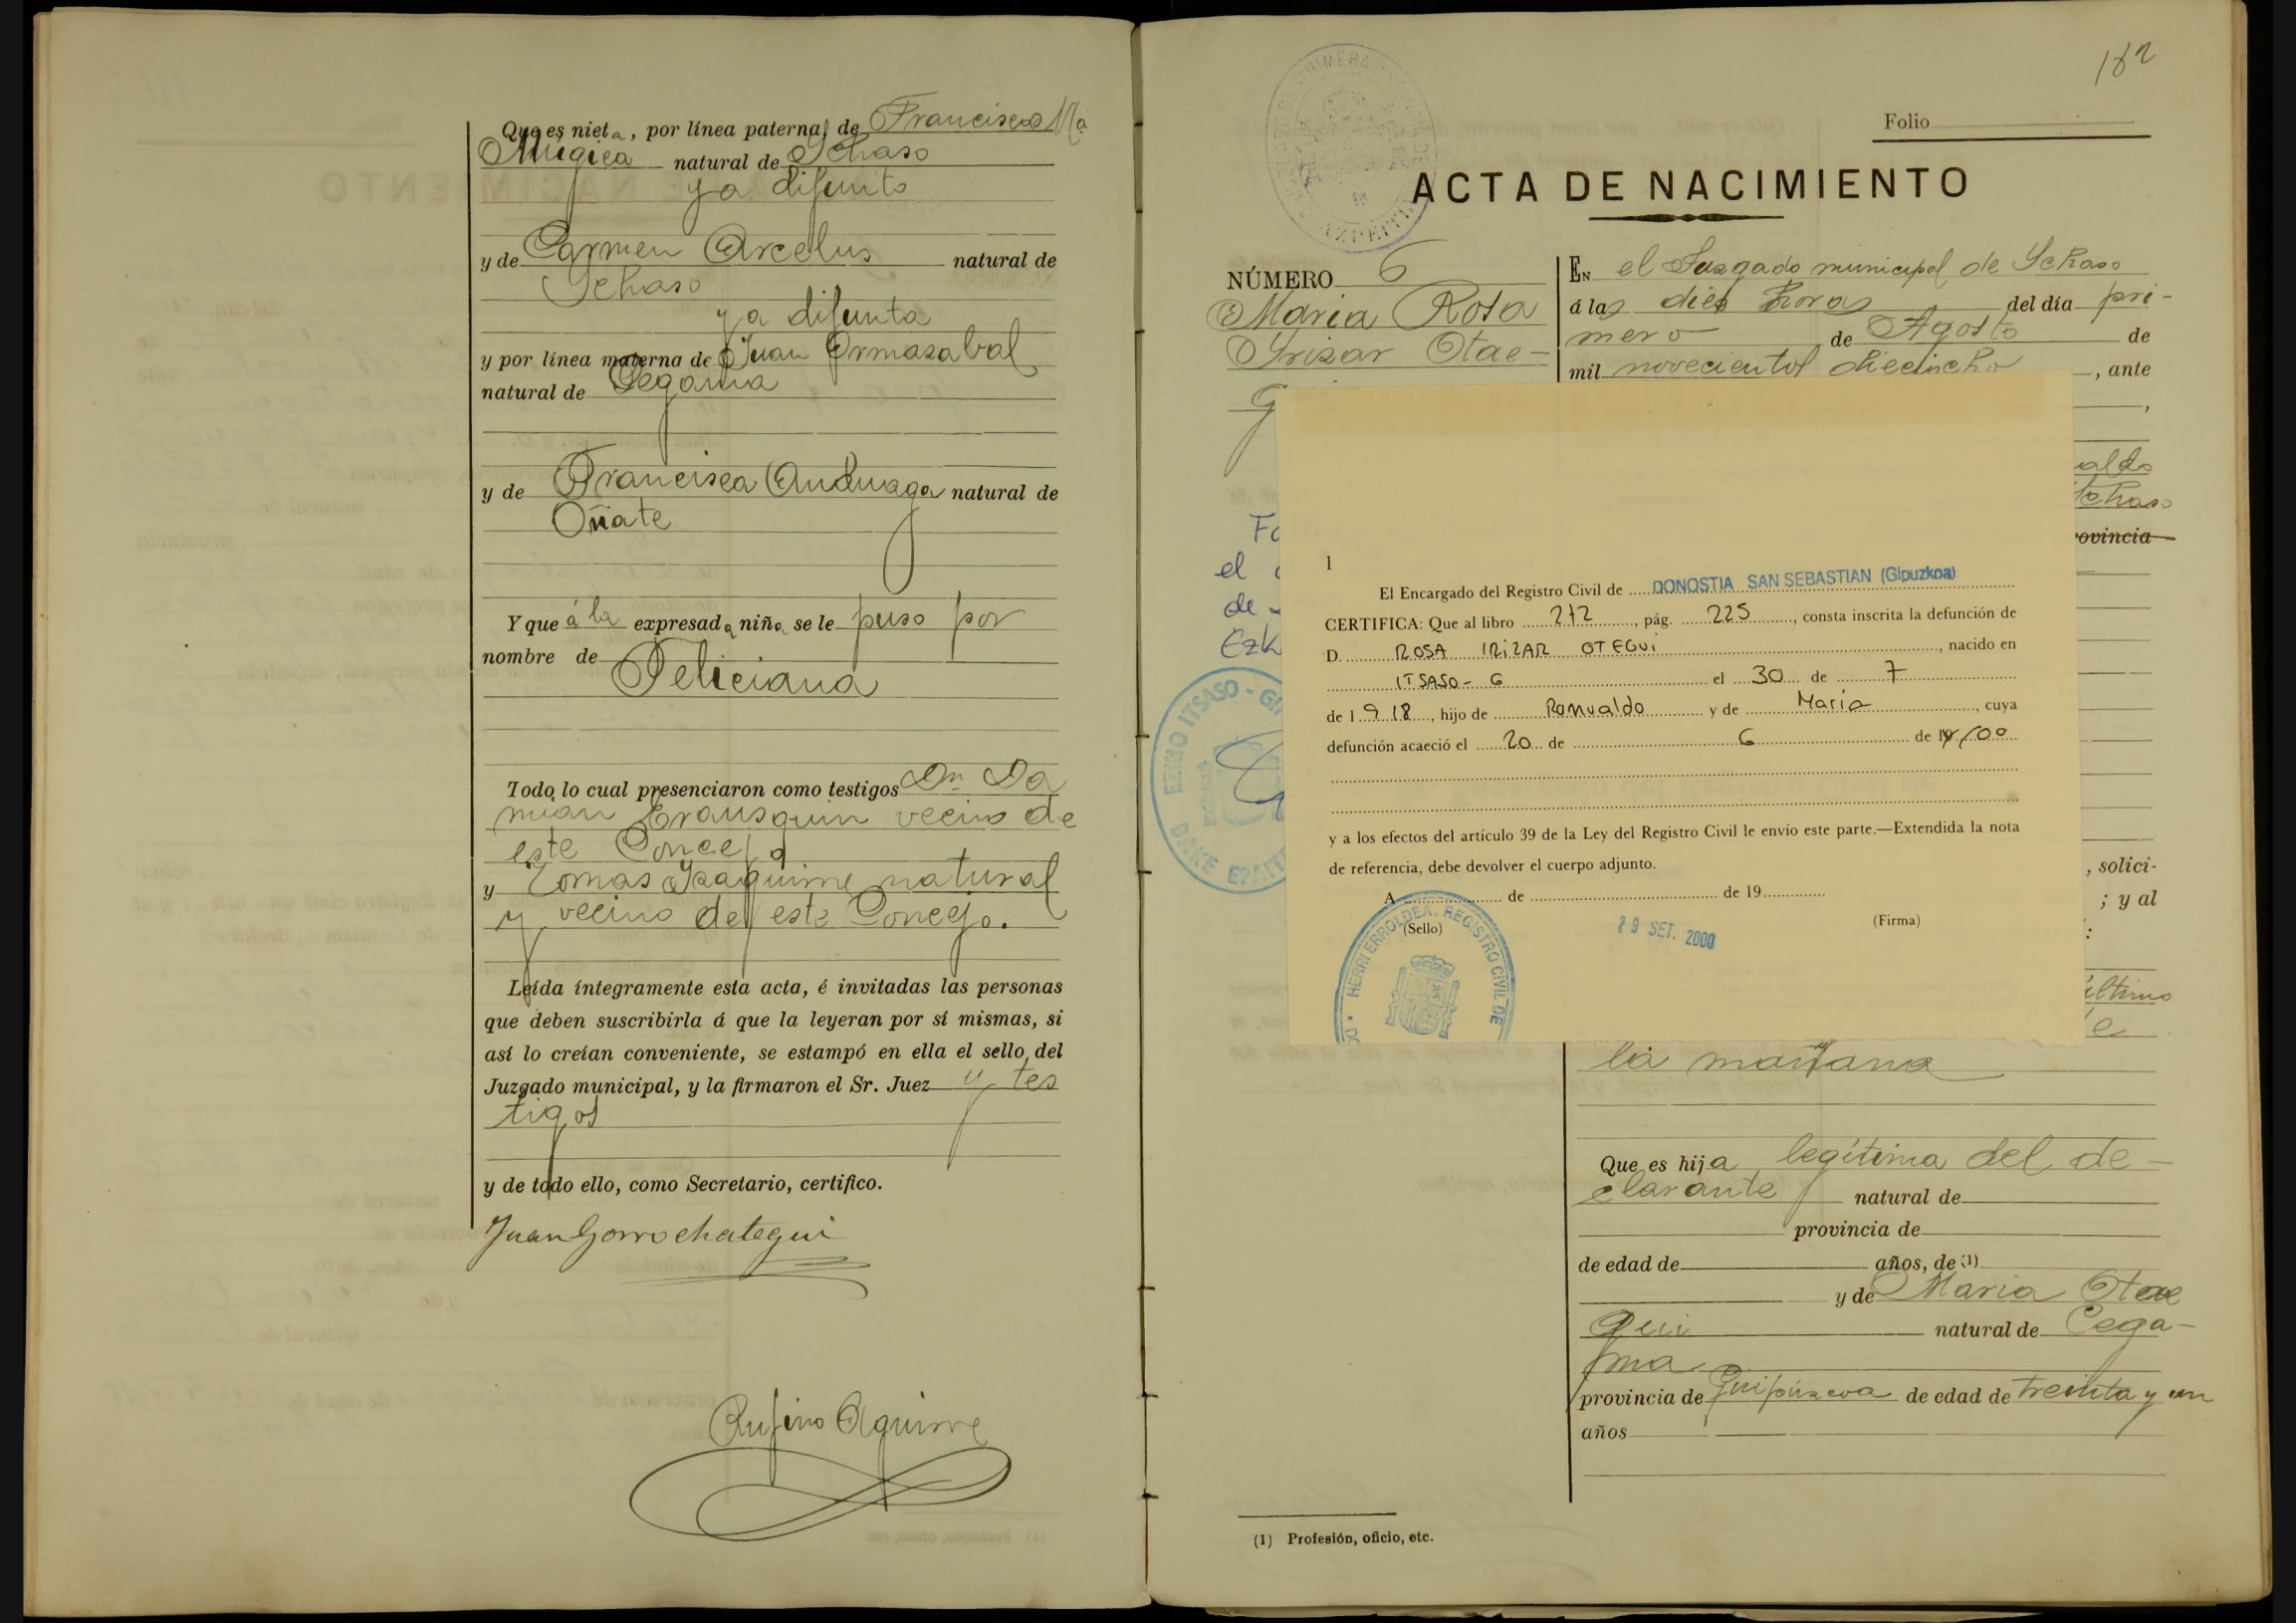 Que es nieta, por línea paterna, de Francisco Ma
Múgica natural de Ichaso
ya difunto
y de Carmen Arcelus natural de
Ichaso
ya difunta
y por línea materna de Juan Ormazabal
natural de Cegama
y de Francisca Anduaga natural de
Oñate
Y que á la expresada niña se le puso por
nombre de Feliciana
Todo lo cual presenciaron como testigos Dn Da
mian Erausquin vecino de
este Concejo
y Tomas Izaguirre natural
y vecino de este Concejo.
Leída íntegramente esta acta, é invitadas las personas
que deben suscribirla á que la leyeran por sí mismas, si
así lo creían conveniente, se estampó en ella el sello del
Juzgado municipal, y la firmaron el Sr. Juez y tes
tigos
y de todo ello, como Secretario, certifico.
Juan Gorrochategui
Rufino Aguirre
182
Folio
ACTA DE NACIMIENTO
NÚMERO 6
Maria Rosa
Irizar Otae-
En el Juzgado municipal de Ichaso
á las diez horas del día pri-
mero de Agosto de
mil novecientos dieciocho, ante
ualdo
Ichaso
rovincia
el
de
Ezk
EZKIO ITSASO - GI
BAKE EPAITE
1
El Encargado del Registro Civil de DONOSTIA SAN SEBASTIAN (Gipuzkoa)
CERTIFICA: Que al libro 272, pág. 225, consta inscrita la defunción de
D. ROSA IRIZAR OTEGUI, nacido en
ITSASO - G el 30 de 7
de 1918, hijo de Romualdo y de Maria, cuya
defunción acaeció el 20 de 6 de 19/00
y a los efectos del artículo 39 de la Ley del Registro Civil le envío este parte.—Extendida la nota
de referencia, debe devolver el cuerpo adjunto.
A de de 19
(Sello)
29 SET. 2000
(Firma)
HERRI ERROLDEA. REGISTRO CIVIL DE
, solici-
; y al
:
último
la mañana
Que es hija legítima del de-
clarante natural de
provincia de
de edad de años, de (1)
y de Maria Otae
gui natural de Cega-
ma
provincia de Guipúzcoa de edad de treinta y un
años
(1) Profesión, oficio, etc.